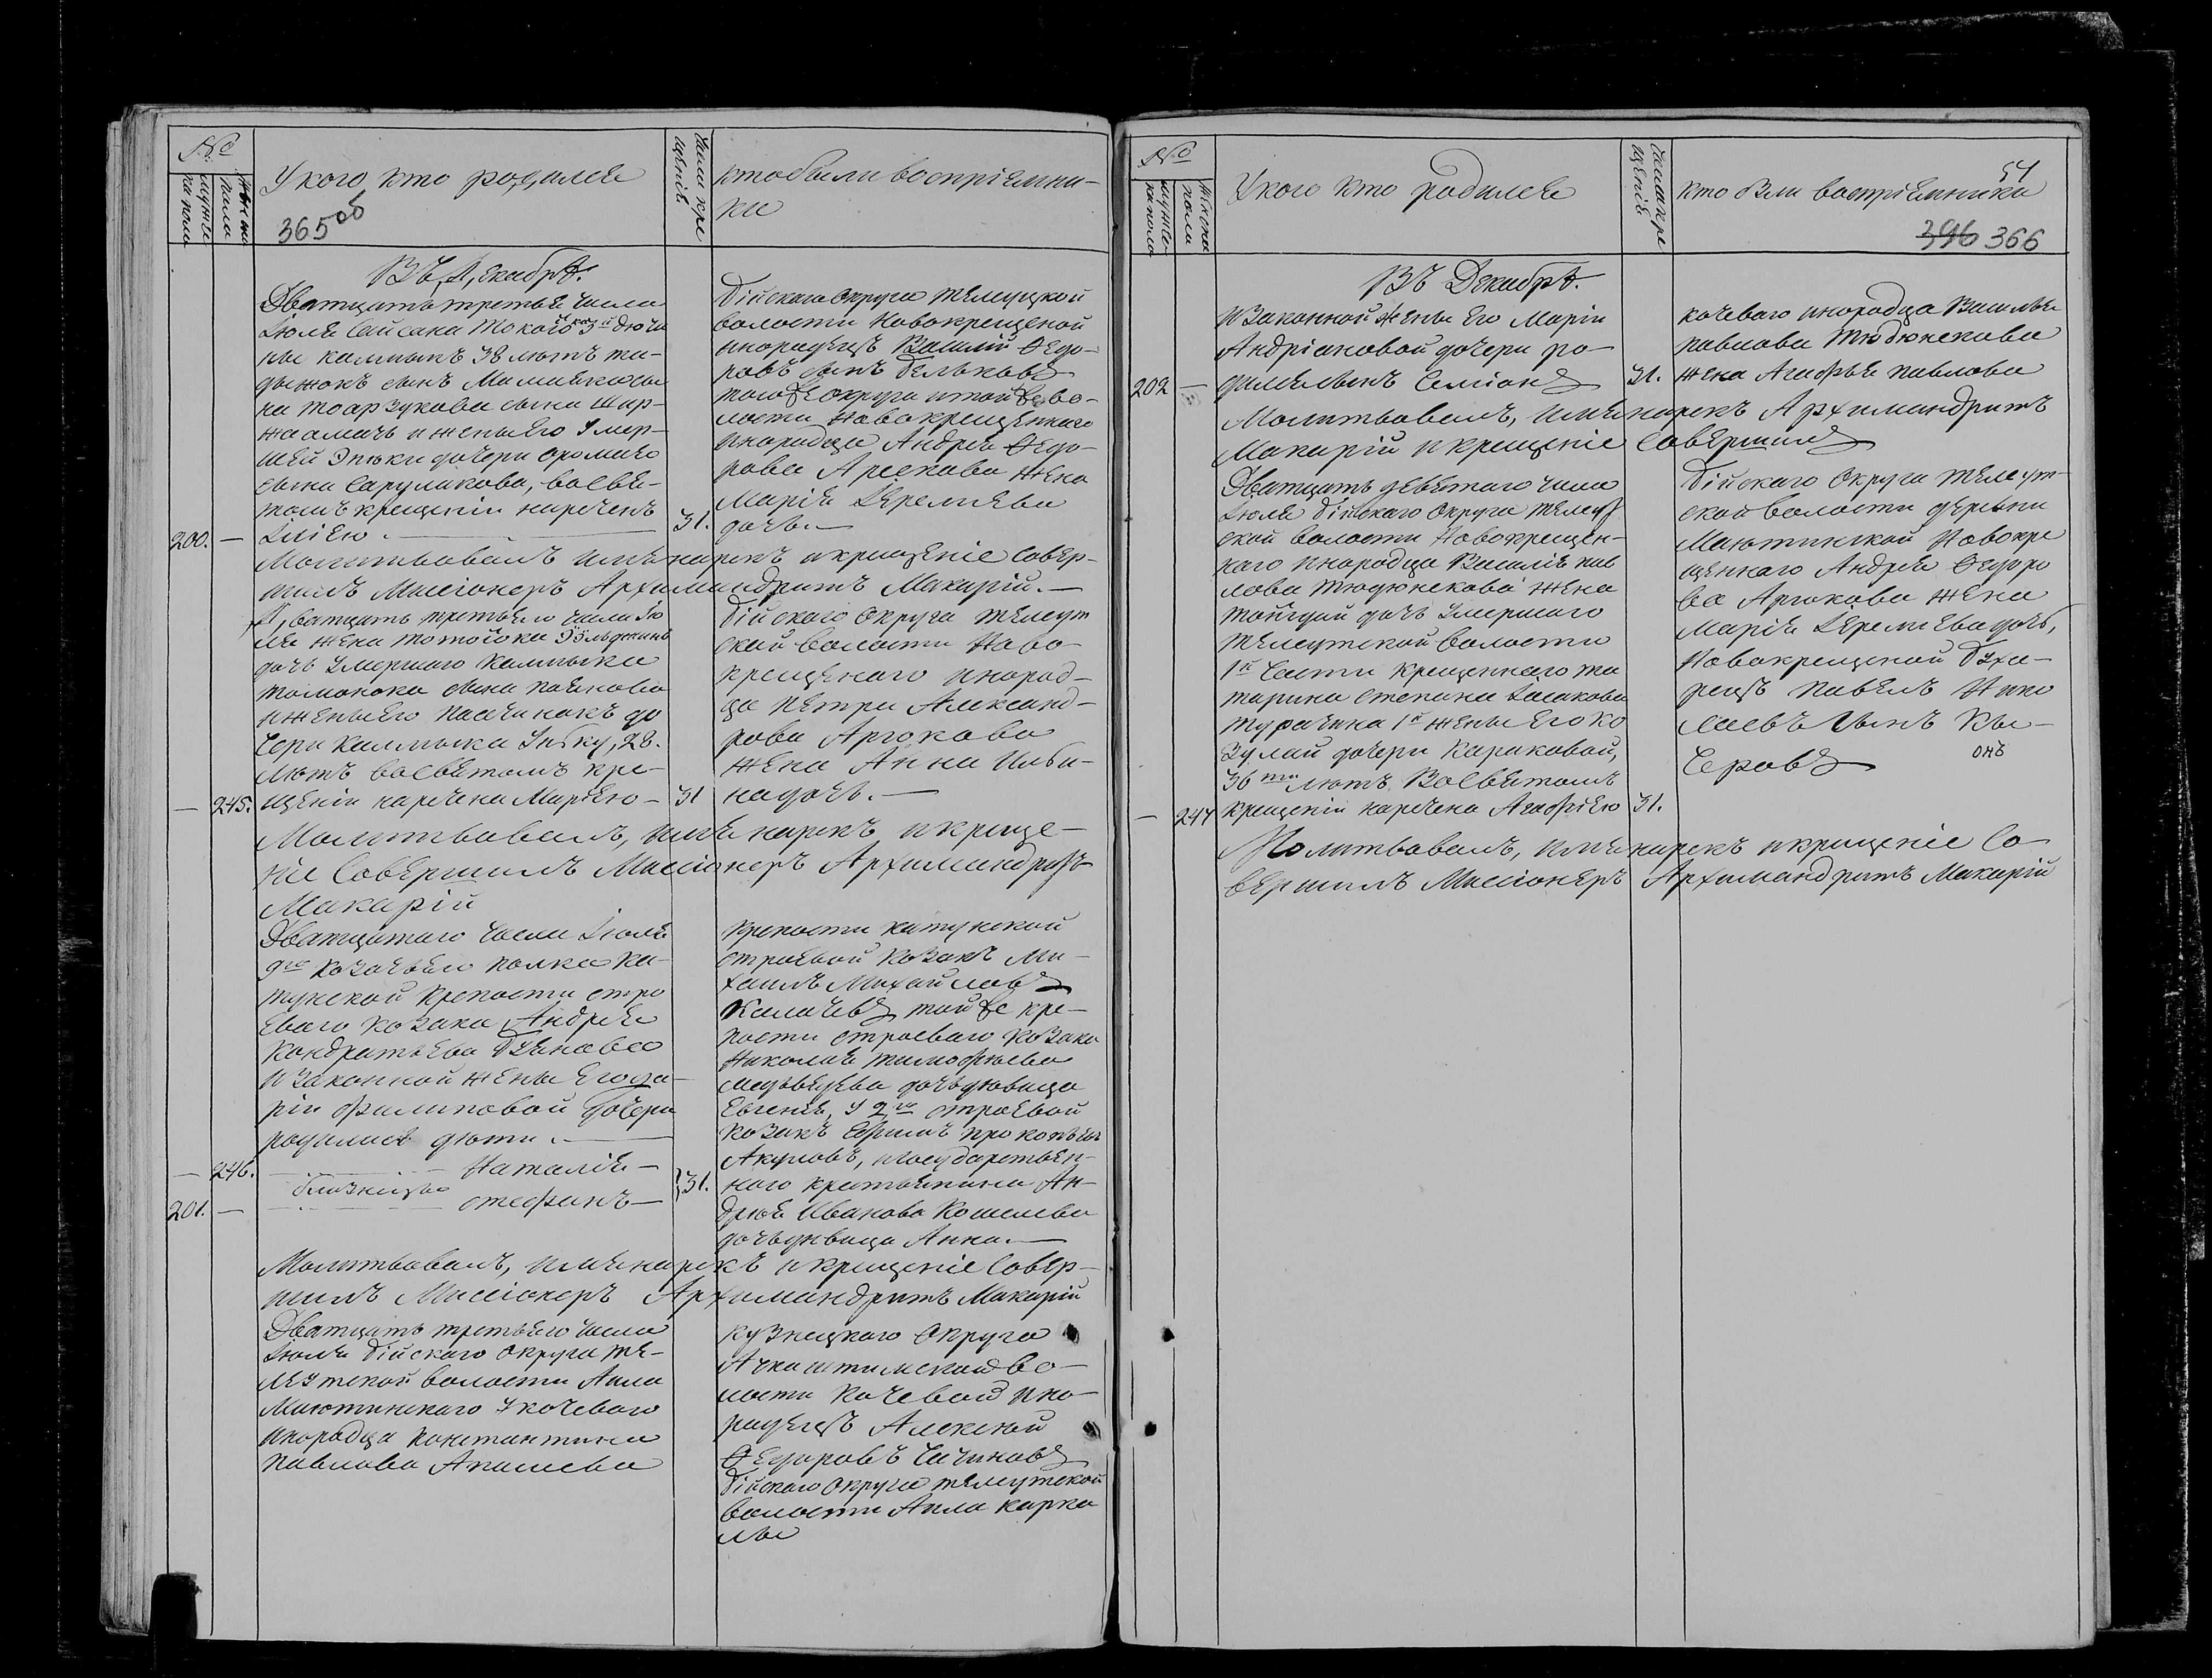 №
мужеска пола
женска пола
У кого кто родился
365об
числа крещенія
кто были воспріемники
Въ Декабрѣ.
Дватцать третьяго числа
Іюля Сайсана
ны калмыкъ 38 лѣтъ
сынъ
сына
и жены его умер-
шей дочери
сына Сарулакова, восвя-
томъ крещеніи нареченъ
200. — Иліею. — 31.
Бійскаго Округа Телеуцкой
волости Новокрещеной
инородецъ Василій Ѳедо-
ровъ сынъ Бельковъ
тогоже округа и тойже во-
лости Новокрещеннаго
инородца Андрея Ѳедо-
рова Аргокова жена
Марія Іеремѣева
дочь. —
Молитвовалъ имя нарекъ и крещеніе совер-
шилъ Миссіонеръ Архимандритъ Макарій. —
Дватцать третьяго числа Ію
ля жена
дочь умершаго калмыка
сына
и жены его до
чери калмыка 28.
лѣтъ восвятомъ кре-
— 245. щеніи наречена Маріею — 31
Бійскаго Округа Телеут
ской волости Ново-
крещенаго инород-
ца Петра Александ-
рова Аргокова
жена Анна
на дочь. —
Молитвовалъ, имя нарекъ и креще-
ніе совершилъ Миссіонеръ Архимандритъ
Макарій
Дватцатаго числа Іюля
9го козачьяго полка Ка-
тунской крепости стро
еваго козака Андрея
Кондратьева
и законной жены его Да-
рьи Филиповой дочери
родились дѣти. —
— 246. Наталія —
близнецы } 31.
201. — Стефанъ —
Крепости катунской
строевой козакъ Ми-
хаилъ Михайловъ
Калачевъ той же кре-
пости строеваго козака
Николая Тимофѣева
Медведева дочь девица
Евгенія, у 2го строевой
козакъ Ефимъ Прокопьевъ
Акуловъ, и государствен-
наго крестьянина Ан-
дрея Иванова Кошелева
дочь девица Анна. —
Молитвовалъ, имя нарекъ и крещеніе совер-
шилъ Миссіонеръ Архимандритъ Макарій
Дватцать третьяго числа
Іюля Бійскаго Округа Те-
леутской волости Аила
Маютинскаго у кочеваго
инородца Константина
Павлова Апашева
Кузнецкаго Округа
Ачкаштимской во-
лости кочевой ино-
родецъ Алексей
Ѳедоровъ
Бійскаго Округа Телеутской
волости Аила карка
лы
№
мужеска пола
женска пола
У кого кто родился
числа крещенія
кто были воспріемники
51
396 366
Въ Декабрѣ.
и законной жены его Маріи
Андріановой дочери ро-
202 — дился сынъ Симеонъ 31.
кочеваго инородца Василья
Павлова Тюдюнекова
жена Агафья Павлова
Молитвовалъ, имя нарекъ Архимандритъ
Макарій и крещеніе совершилъ
Дватцать девятаго числа
Іюля Бійскаго Округа Телеут
ской волости Новокрещен-
наго инородца Василія Пав
лова Тюдюнекова жена
дочь умершаго
Телеутской волости
1й части крещеннаго та
тарина Степана
1й жены его Ко
зулай дочери Караковой,
36ти лѣтъ Восвятомъ
— 247 крещеніи наречена Агафіею 31.
Бійскаго Округа Телеут
ской волости деревни
Маютинской Новокре
щеннаго Андрея Ѳедоро
ва Аргокова жена
Марія Іеремѣева дочь,
Новокрещеной Буха-
рецъ Павелъ Нико
лаевъ сынъ Кы-
черовъ онъ
Молитвовалъ, имя нарекъ и крещеніе со-
вершилъ Миссіонеръ Архимандритъ Макарій